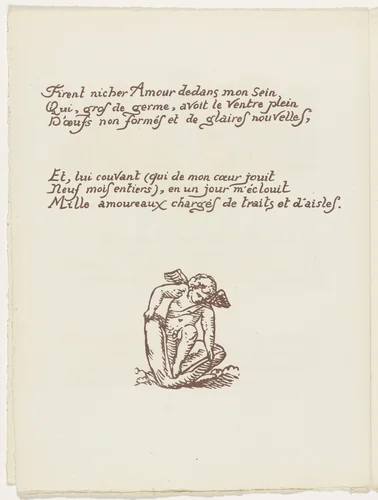 Firent nicher Amour dedans mon sein,
Qui, gros de germe, avoit le ventre plein
D'œufs non formés et de glaires nouvelles,
Et, lui couvant (qui de mon cœur jouit
Neuf mois entiers), en un jour m'éclouit
Mille amoureaux chargés de traits et d'aisles.